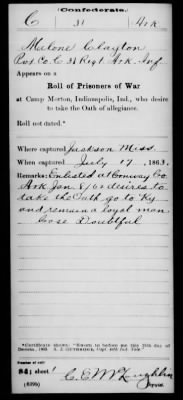 Confederate.
C 31 Ark
Melone Clayton
Co. C 31 Regt Ark Inf
Appears on a
Roll of Prisoners of War
at Camp Morton, Indianapolis, Ind., who desire
to take the Oath of allegiance.
Roll not dated.*
Where captured Jackson Miss.
When captured July 17, 1863.
Remarks: Enlisted at Conway Co
Ark Jan 8/62 desires to
take the Oath go to Ky
and remain a loyal man
Case Doubtful
Number of roll:
sheet
C. E. McLoughlin
Copyist.